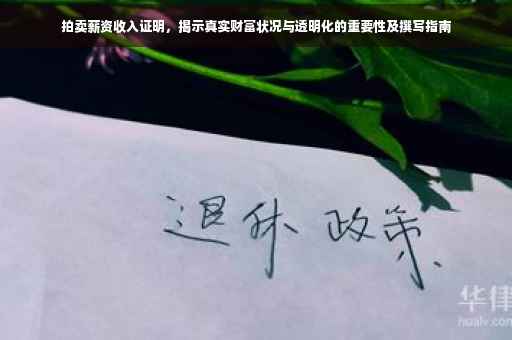 拍卖薪资收入证明，揭示真实财富状况与透明化的重要性及撰写指南
退休 政策
华律
hualv.com